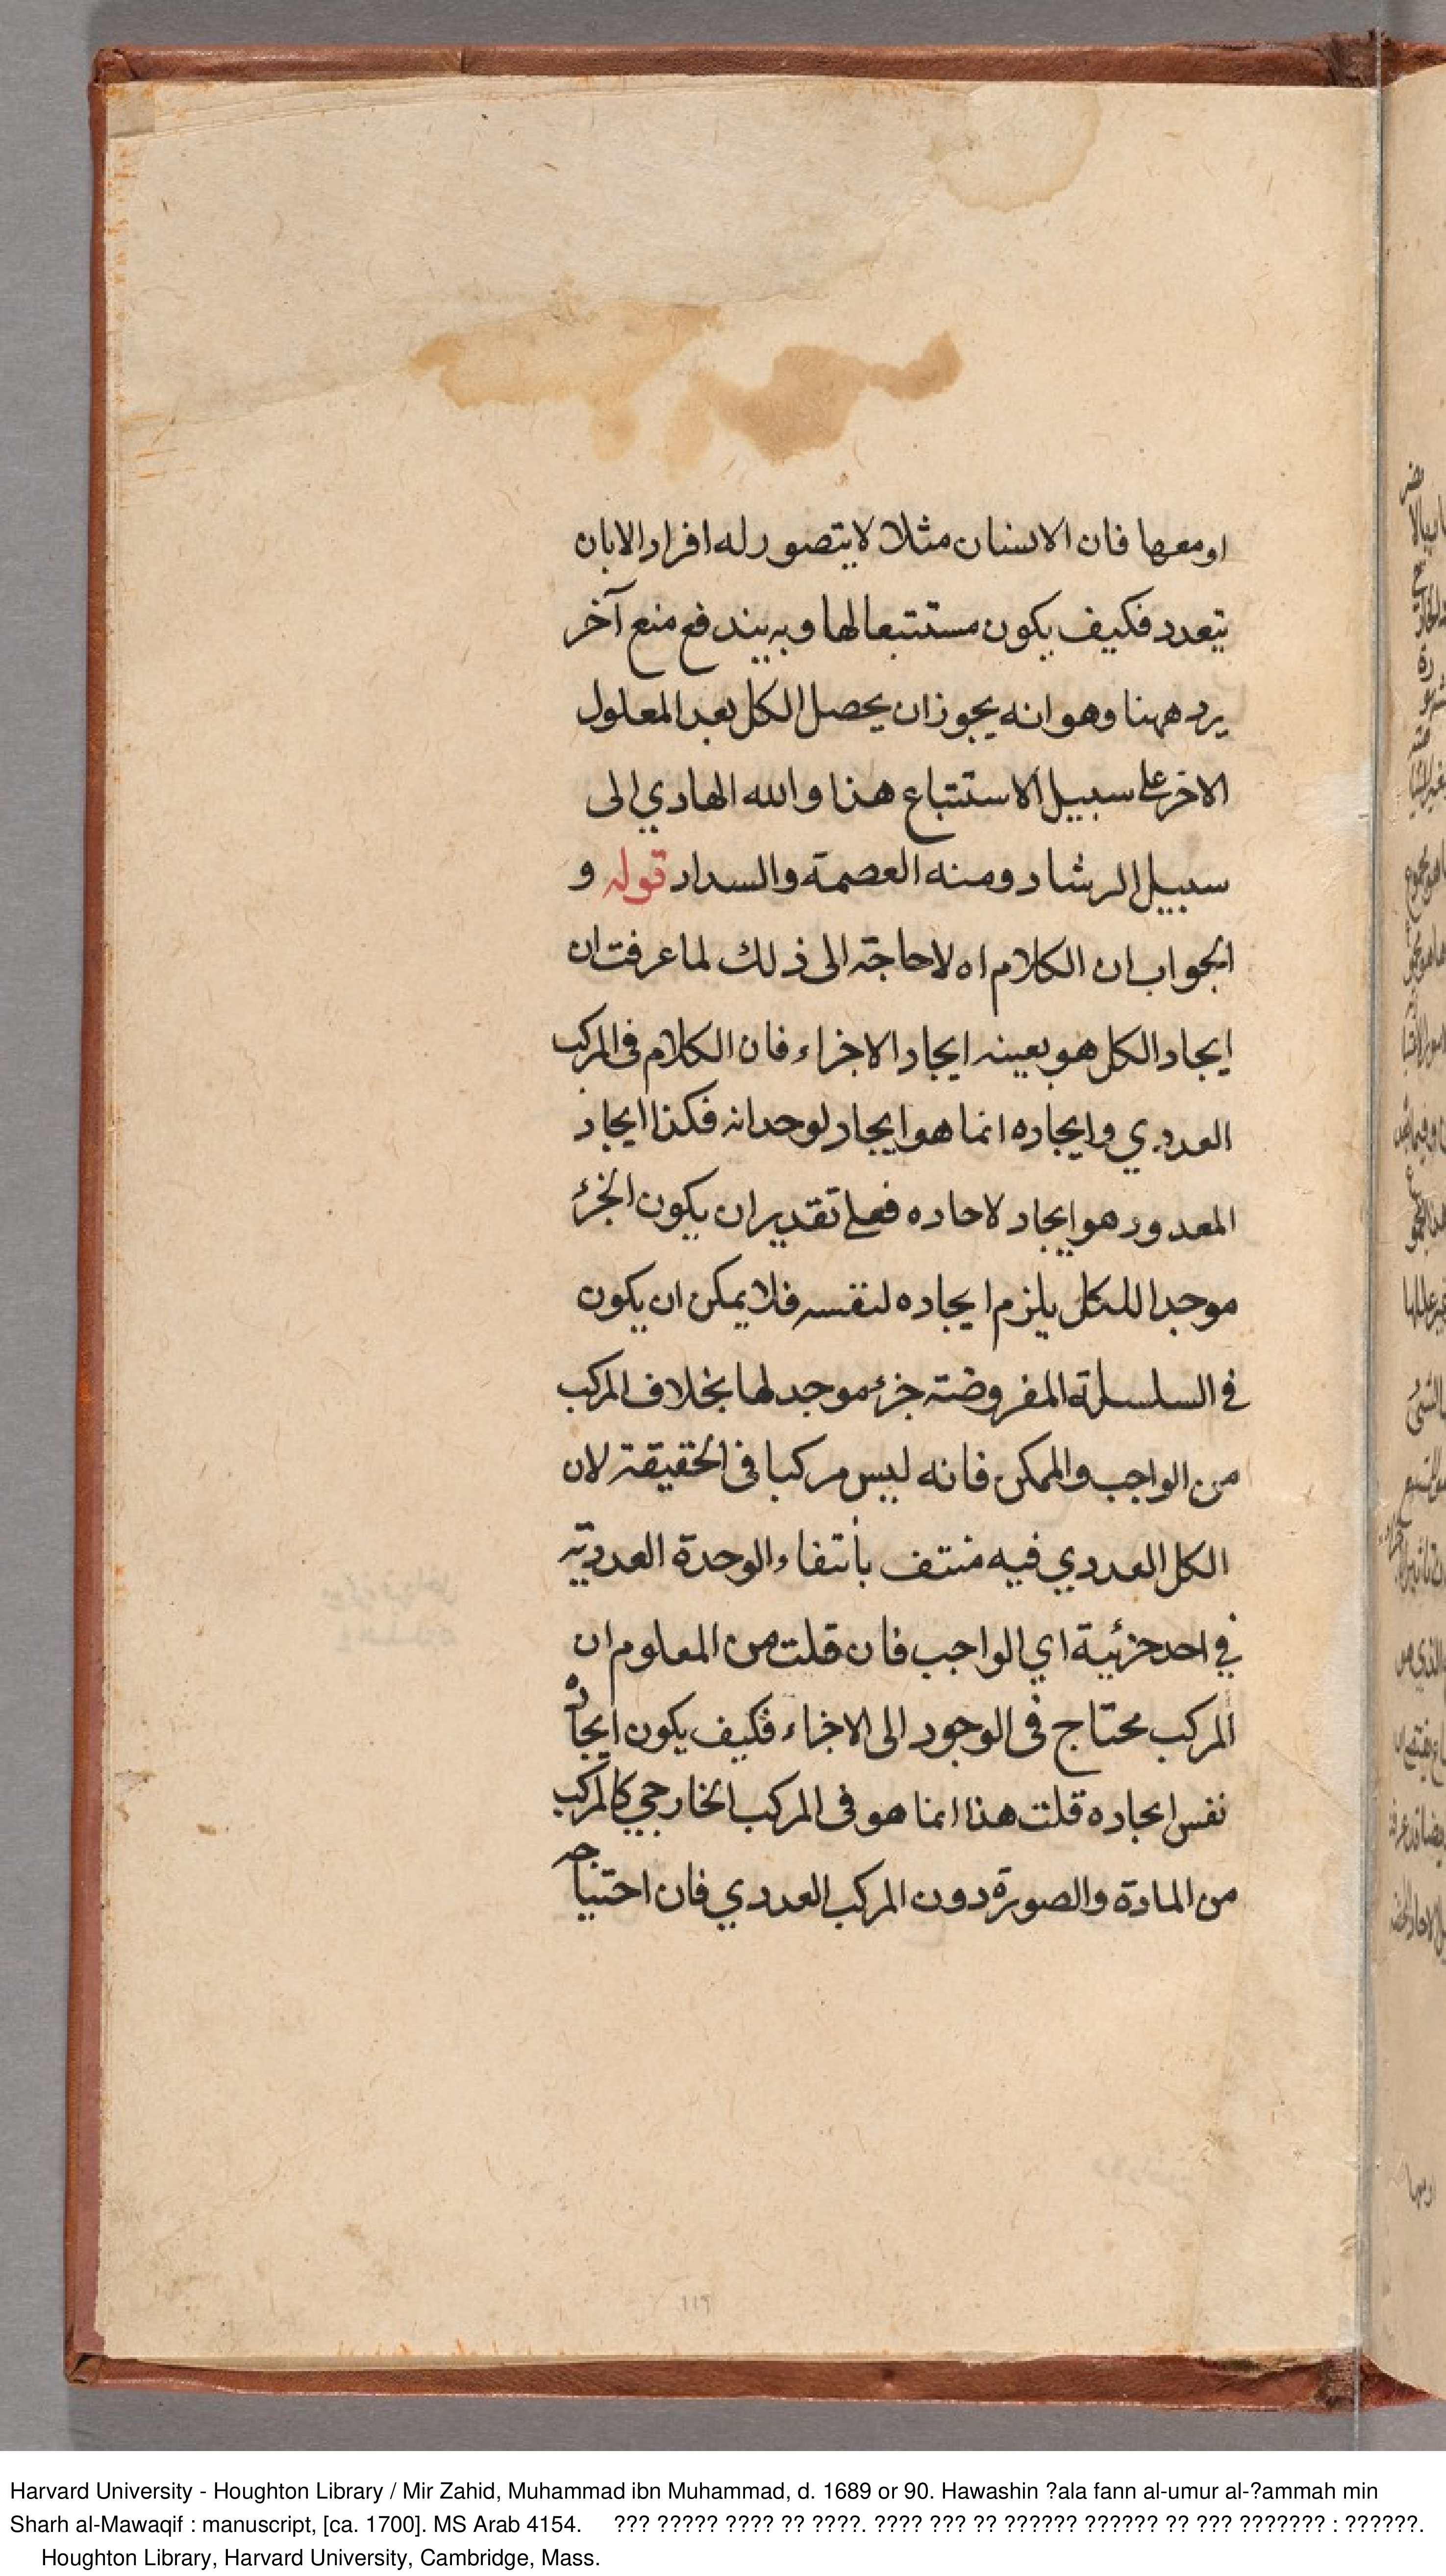 او معها فان الانسان مثلا لا يتصور له افراد الا بان
يتعدد فكيف يكون مستتبعا لها وبه يندفع منع آخر
يرد ههنا وهو انه يجوز ان يحصل الكل بعد المعلول
الاخر على سبيل الاستتباع هذا والله الهادي الى
سبيل الرشاد ومنه العصمة والسداد قوله و
الجواب ان الكلام اه لا حاجة الى ذلك لما عرفت ان
ايجاد الكل هو بعينه ايجاد الاجزاء فان الكلام فى المركب
العددي وايجاده انما هو ايجاد لوحداته فكذا ايجاد
المعدود هو ايجاد لاحاده فعلى تقدير ان يكون الجزء
موجدا للكل يلزم ايجاده لنفسه فلا يمكن ان يكون
في السلسلة المفروضة جزء موجد لها بخلاف المركب
من الواجب والممكن فانه ليس مركبا فى الحقيقة لان
الكل العددي فيه منتف بانتفاء الوحدة العددية
في احد جزئية اي الواجب فان قلت من المعلوم ان
المركب محتاج فى الوجود الى الاجزاء فكيف يكون ايجاده
نفس ايجاده قلت هذا انما هو فى المركب الخارجي كالمركب
من المادة والصورة دون المركب العددي فان احتياجه
119
Harvard University - Houghton Library / Mir Zahid, Muhammad ibn Muhammad, d. 1689 or 90. Hawashin ?ala fann al-umur al-?ammah min
Sharh al-Mawaqif : manuscript, [ca. 1700]. MS Arab 4154. ??? ????? ???? ?? ????. ???? ??? ?? ?????? ?????? ?? ??? ??????? : ??????.
Houghton Library, Harvard University, Cambridge, Mass.